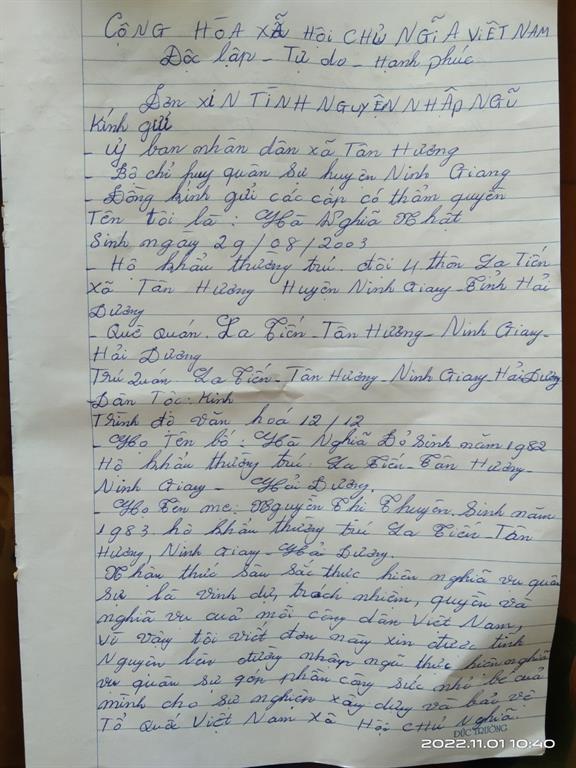 CỘNG HÓA XÃ HỘI CHỦ NGĨA VIỆT NAM
Độc lập - Tự do - Hạnh phúc
Đơn XIN TÌNH NGUYỆN NHẬP NGŨ
Kính gửi
- Uỷ ban nhân dân xã Tân Hương
- Bộ chỉ huy quân sự huyện Ninh Giang
- Đồng kính gửi các cấp có thẩm quyền
Tên tôi là : Hà Nghĩa Nhất
Sinh ngày 29/08/2003
- Hộ khẩu thường trú. đội 4 thôn La Tiến
xã Tân Hương Huyện Ninh Giang - Tỉnh Hải
Dương
- Quê quán. La Tiến - Tân Hương - Ninh Giang -
Hải Dương
Trú Quán. La Tiến - Tân Hương - Ninh Giang - Hải Dương
- Dân Tộc : Kinh
Trình độ văn hoá 12/12
- Họ Tên bố : Hà Nghĩa Đỏ Sinh năm 1982
Hộ khẩu thường trú : La Tiến - Tân Hương -
Ninh Giang - Hải Dương.
- Họ Tên mẹ : Nguyễn Thị Thuyên. Sinh năm
1983 hộ khẩu thường trú La Tiến - Tân
Hương, Ninh Giang - Hải Dương.
Nhận thức sâu sắc thực hiện nghĩa vụ quân
sự là vinh dự, trách nhiệm, quyền và
nghĩa vụ của mỗi công dân Việt Nam,
Vì vậy tôi viết đơn này xin được tình
Nguyện lên đường nhập ngũ thực hiện nghĩa
vụ quân sự góp phần công sức nhỏ bé của
mình cho sự nghiệp xây dựng và bảo vệ
Tổ Quốc Việt Nam Xã Hội Chủ Nghĩa.
ĐỨC TRƯỜNG
2022.11.01 10:40